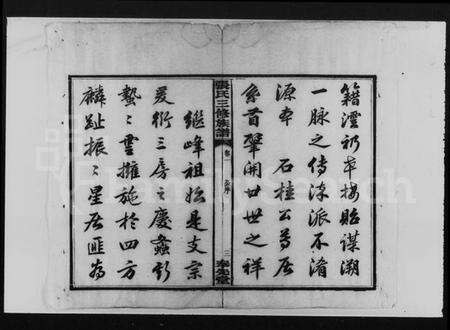 籍澧初卒按貽謀溯
一脉之傳洙派不淆
源本 石桂公為居
系首肇開廿世之祥
張氏三修族譜 卷一 二 奉先堂
繼峰祖始是支宗
爰衍三房之慶螽斯
蟄蟄雲擁施於四方
麟趾振振星居匪為